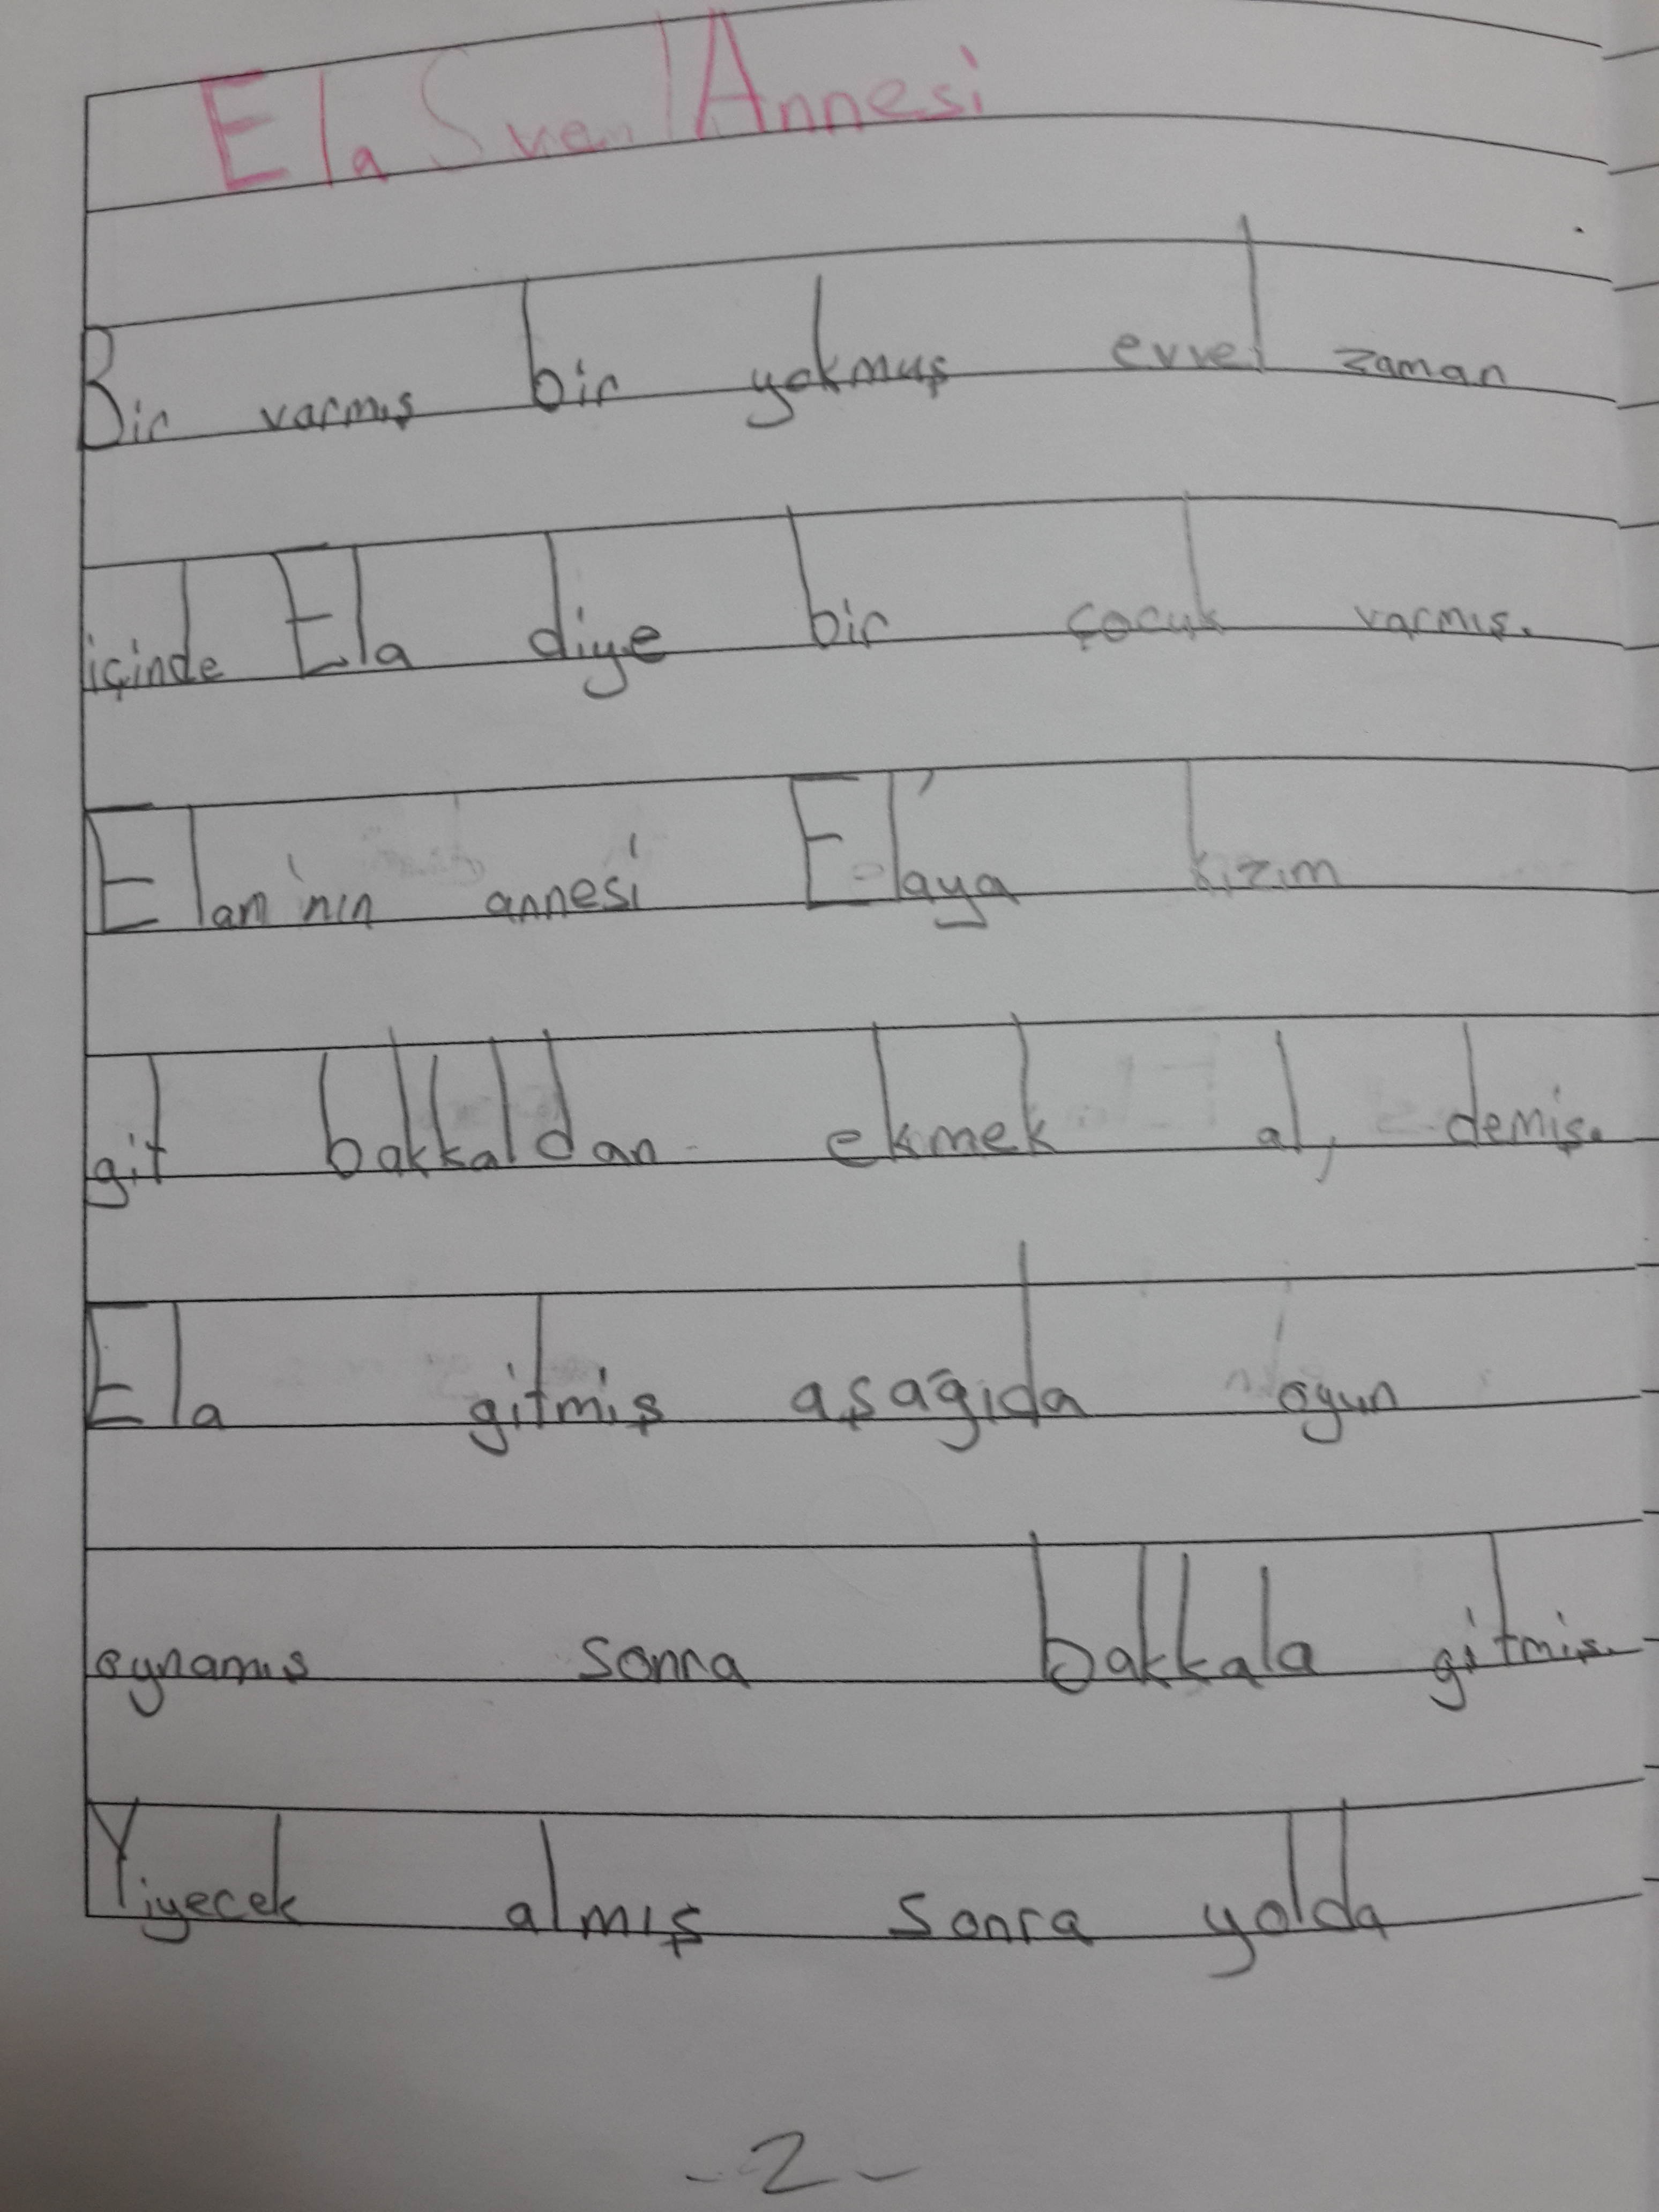 Ela Sven Annesi
Bir varmış bir yokmuş evvel zaman
içinde Ela diye bir çocuk varmış.
Elan'nın annesi Ela'ya kızım
git bakkaldan ekmek al, demiş.
Ela gitmiş aşağıda oyun
oynamış sonra bakkala gitmiş.
Yiyecek almış sonra yolda
-2-